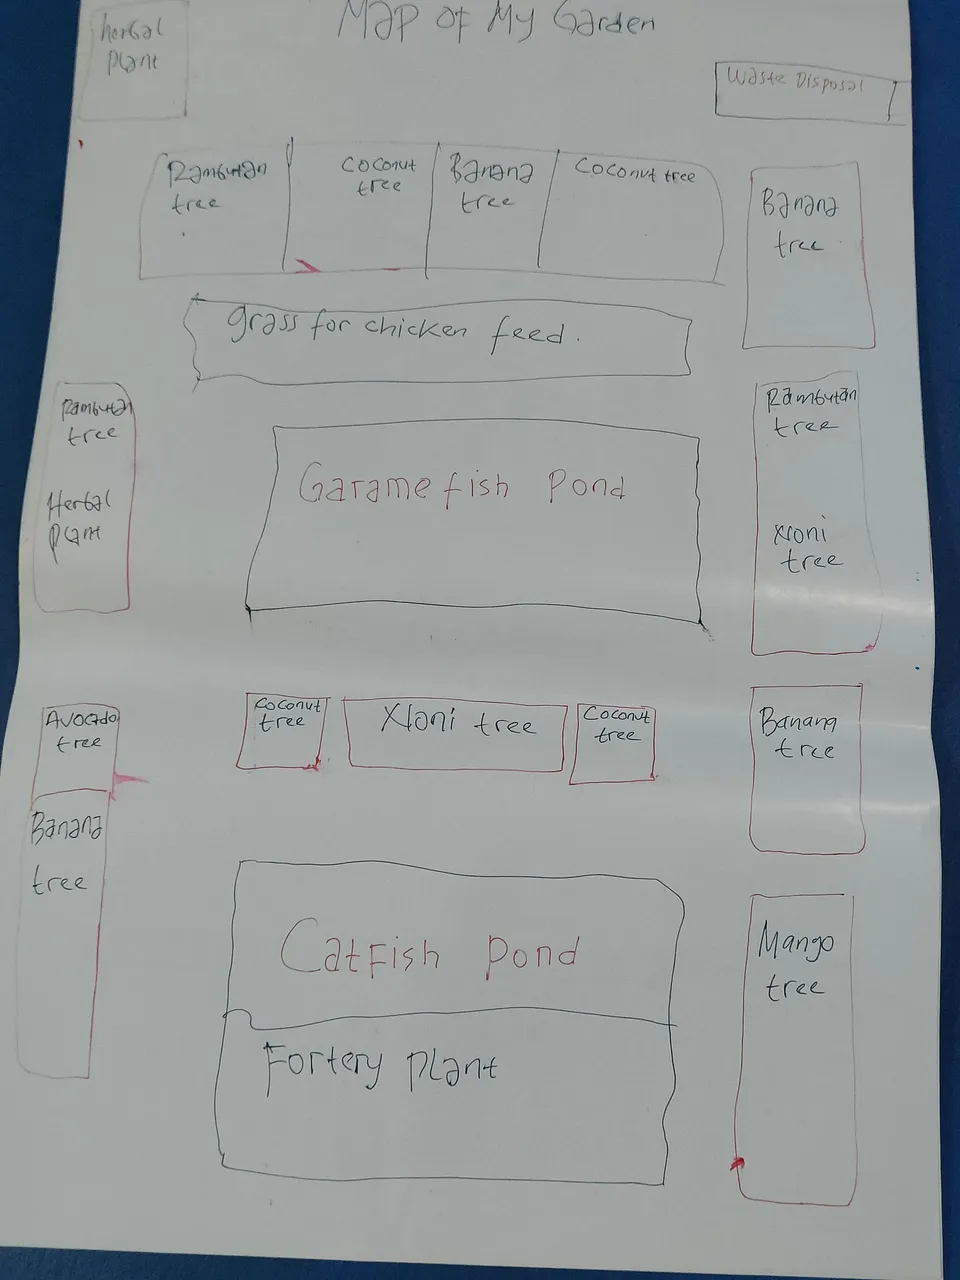 Map of My Garden
herbal
plant
Waste Disposal
Rambutan
tree
Coconut
tree
Banana
tree
Coconut tree
Banana
tree
grass for chicken feed.
Rambutan
tree
Herbal
plant
Garamefish Pond
Rambutan
tree
Xloni
tree
Avocado
tree
Banana
tree
Coconut
tree
Xloni tree
Coconut
tree
Banana
tree
Catfish Pond
Fortery plant
Mango
tree